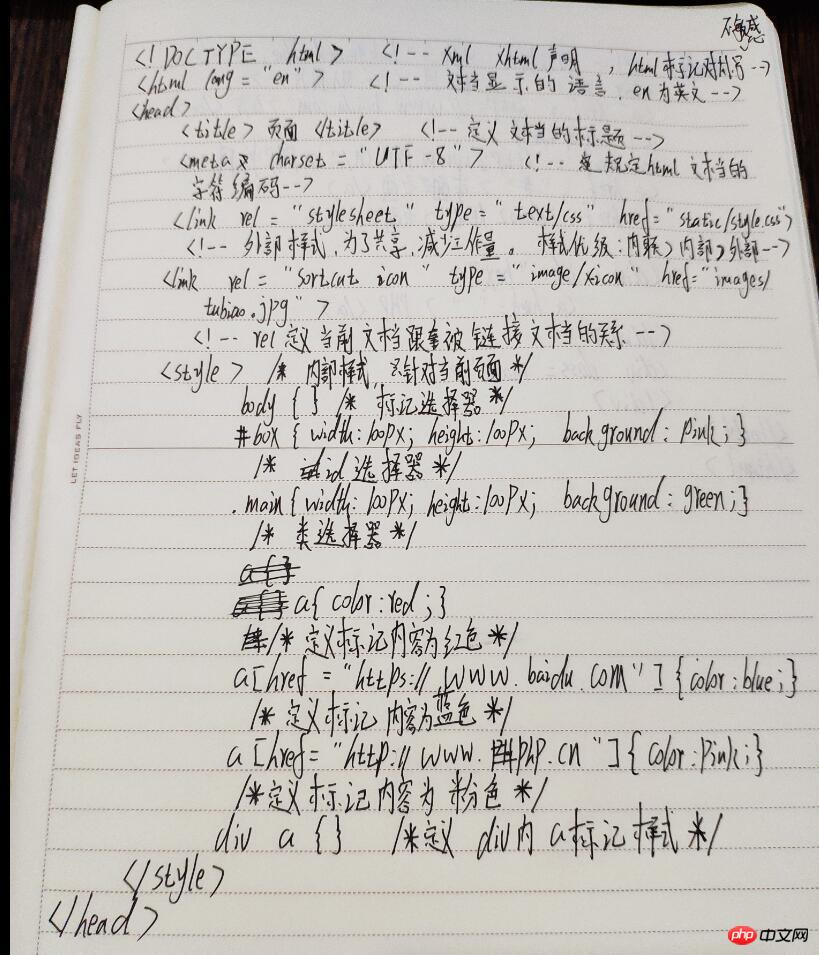 不敏感
<!DOCTYPE html> <!-- xml xhtml 声明, html标记对大小写 -->
<html lang="en"> <!-- 文档显示的语言, en为英文 -->
<head>
<title> 页面 </title> <!-- 定义文档的标题 -->
<meta charset="UTF-8"> <!-- 规定html文档的
字符编码-->
<link rel="stylesheet" type="text/css" href="static/style.css">
<!-- 外部样式,为了共享,减少工作量。 样式优级:内联>内部>外部-->
<link rel="sortcut icon" type="image/xicon" href="images/
tubiao.jpg">
<!-- rel定义当前文档跟被链接文档的关系 -->
<style> /* 内部样式 只针对当前页面 */
body { } /* 标记选择器 */
#box { width:100px; height:100px; background: pink; }
/* id选择器 */
.main{ width: 100px; height:100px; background: green;}
/* 类选择器 */
a{}
a{} a{ color:red;}
/* 定义标记内容为红色 */
a[href="https://www.baidu.com"]{color:blue;}
/* 定义标记内容为蓝色 */
a[href="http://www.php.cn"]{color:pink;}
/*定义标记内容为粉色 */
div a {} /*定义 div内a标记样式 */
</style>
</head>
LET IDEAS FLY
php 中文网